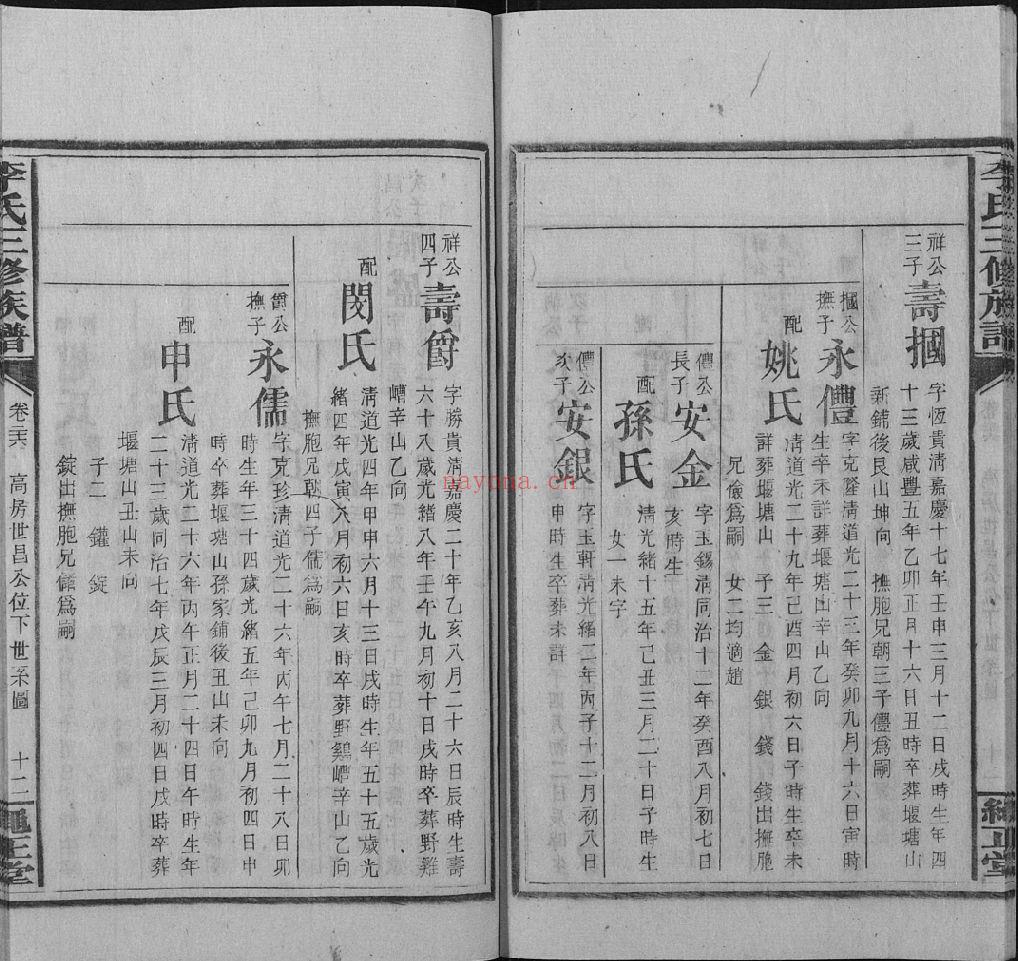 李氏三修族譜
緒正堂
祥公
三子
壽摑
字恆貴清嘉慶十七年壬申三月十二日戌時生年四
十三歲咸豐五年乙卯正月十六日丑時卒葬堰塘山
新鋪後艮山坤向 撫胞兄朝三子僼爲嗣
摑公
撫子
永僼
字克隆清道光二十三年癸卯九月十六日寅時
生卒未詳葬堰塘山辛山乙向
配
姚氏
清道光二十九年己酉四月初六日子時生卒未
詳葬堰塘山 子三 金 銀 錢 錢出撫胞
兄儉爲嗣 女二均適趙
僼公
長子
安金
字玉錫清同治十二年癸酉八月初七日
亥時生
配
孫氏
清光緒十五年己丑三月二十日子時生
女一未字
僼公
次子
安銀
字玉軒清光緒二年丙子十二月初八日
申時生卒葬未詳
nayona.cn
祥公
四子
壽爵
字勝貴清嘉慶二十年乙亥八月二十六日辰時生壽
六十八歲光緒八年壬午九月初十日戌時卒葬野雞
嶆辛山乙向
配
閔氏
清道光四年甲申六月十三日戌時生年五十五歲光
緒四年戊寅八月初六日亥時卒葬野鷄嶆辛山乙向
撫胞兄朝四子儒爲嗣
爵公
撫子
永儒
字克珍清道光二十六年丙午七月二十八日卯
時生年三十四歲光緒五年己卯九月初四日申
時卒葬堰塘山孫家鋪後丑山未向
配
申氏
清道光二十六年丙午正月二十四日午時生年
二十三歲同治七年戊辰三月初四日戌時卒葬
堰塘山丑山未向
子二 鑵 錠
錠出撫胞兄僅爲嗣
李氏三修族譜
卷三六 高房世昌公位下世系圖 十二
正堂